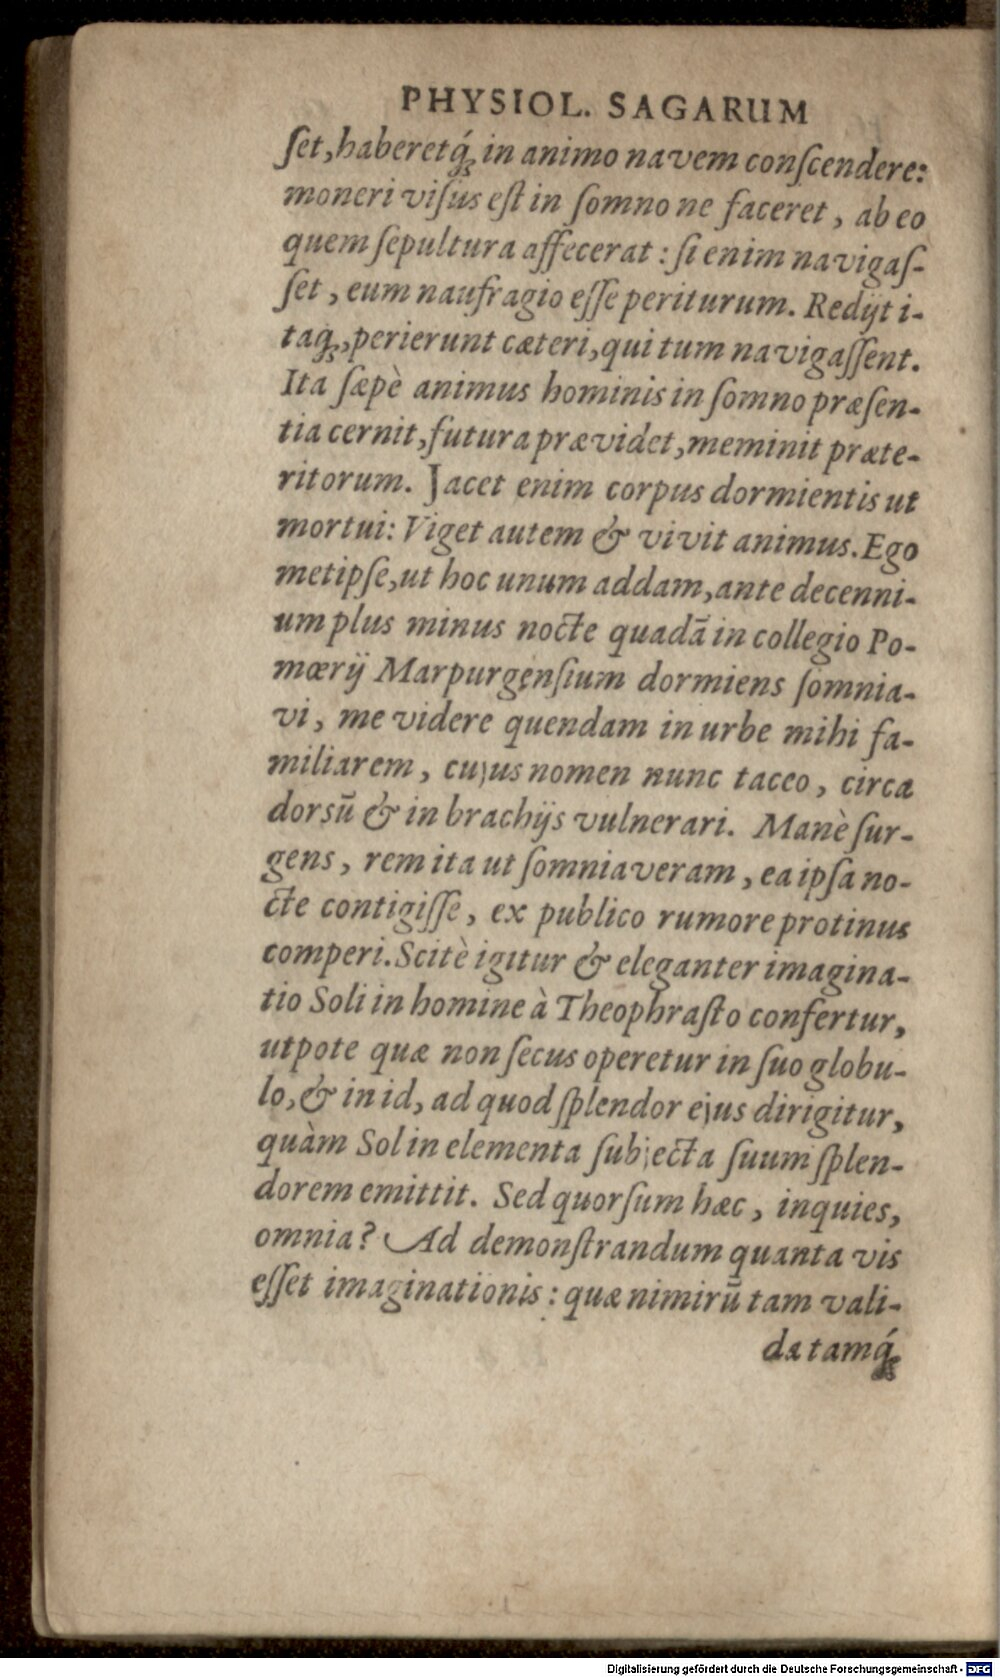 PHYSIOL. SAGARUM
ſet, haberetq́; in animo navem conſcendere:
moneri viſus eſt in ſomno ne faceret, ab eo
quem ſepultura affecerat: ſi enim navigaſ-
ſet, eum naufragio eſſe periturum. Redijt i-
taq;, perierunt cæteri, qui tum navigaſſent.
Ita ſæpè animus hominis in ſomno præſen-
tia cernit, futura prævidet, meminit præte-
ritorum. Jacet enim corpus dormientis ut
mortui: Viget autem & vivit animus. Ego
metipſe, ut hoc unum addam, ante decenni-
um plus minus nocte quadā in collegio Po-
mœrij Marpurgenſium dormiens ſomnia-
vi, me videre quendam in urbe mihi fa-
miliarem, cujus nomen nunc taceo, circa
dorsū & in brachijs vulnerari. Manè ſur-
gens, rem ita ut ſomniaveram, ea ipſa no-
cte contigiſſe, ex publico rumore protinus
comperi. Scitè igitur & eleganter imagina-
tio Soli in homine à Theophraſto confertur,
utpote quæ non ſecus operetur in ſuo globu-
lo, & in id, ad quod ſplendor ejus dirigitur,
quàm Sol in elementa ſubjecta ſuum ſplen-
dorem emittit. Sed quorſum hæc, inquies,
omnia? Ad demonſtrandum quanta vis
eſſet imaginationis: quæ nimirū tam vali-
da tamq́;
Digitalisierung gefördert durch die Deutsche Forschungsgemeinschaft - DFG